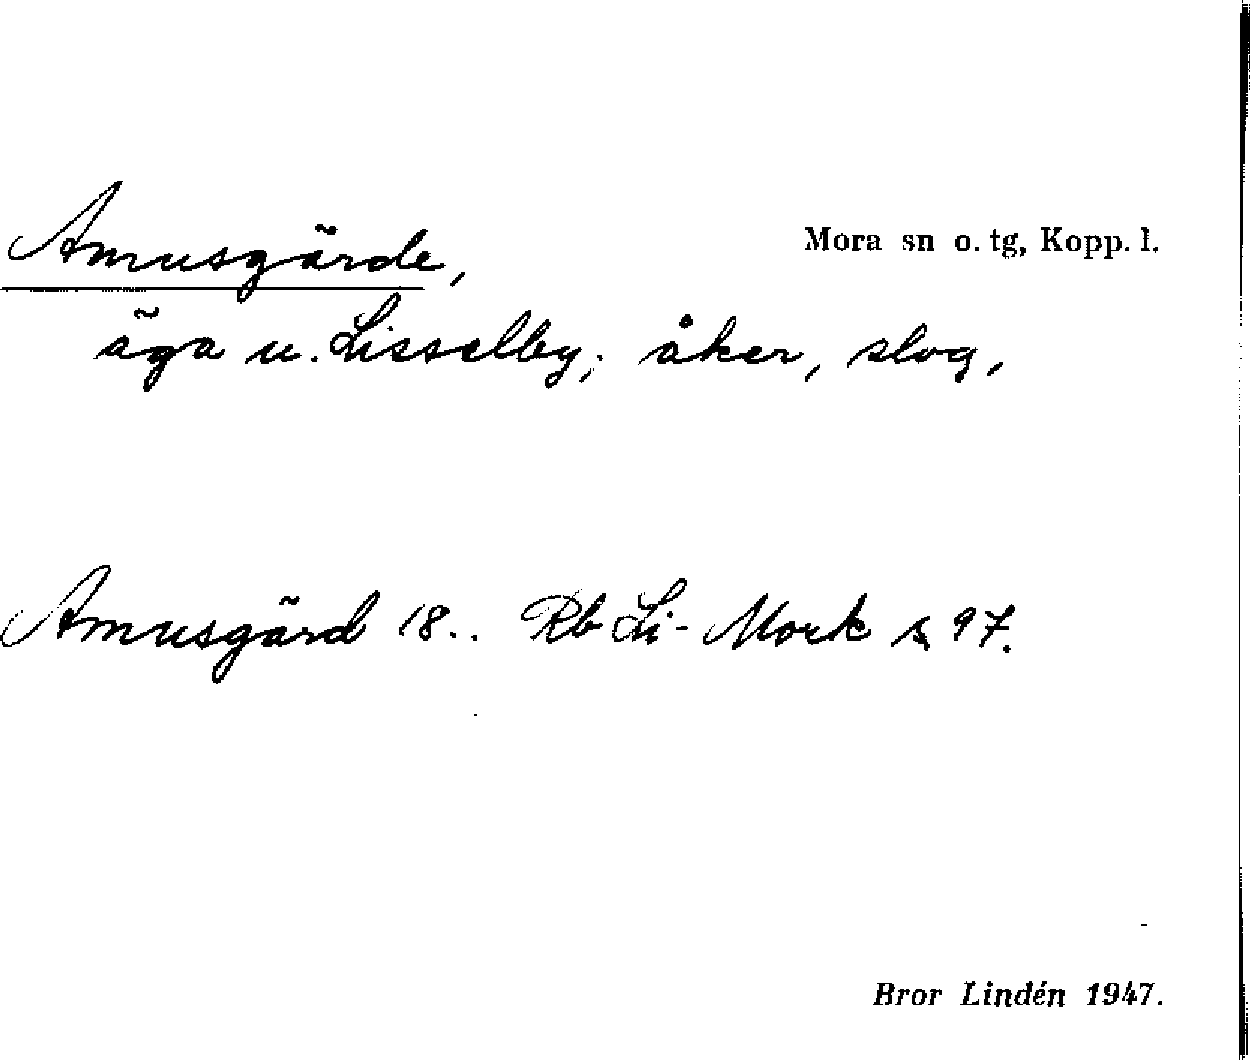 Amusgärde,
Mora sn o. tg, Kopp. l.
äga u. Lisselby; åker, slog,
Amusgärd 18.. Rb Li- Mork s 97.
Bror Lindén 1947.